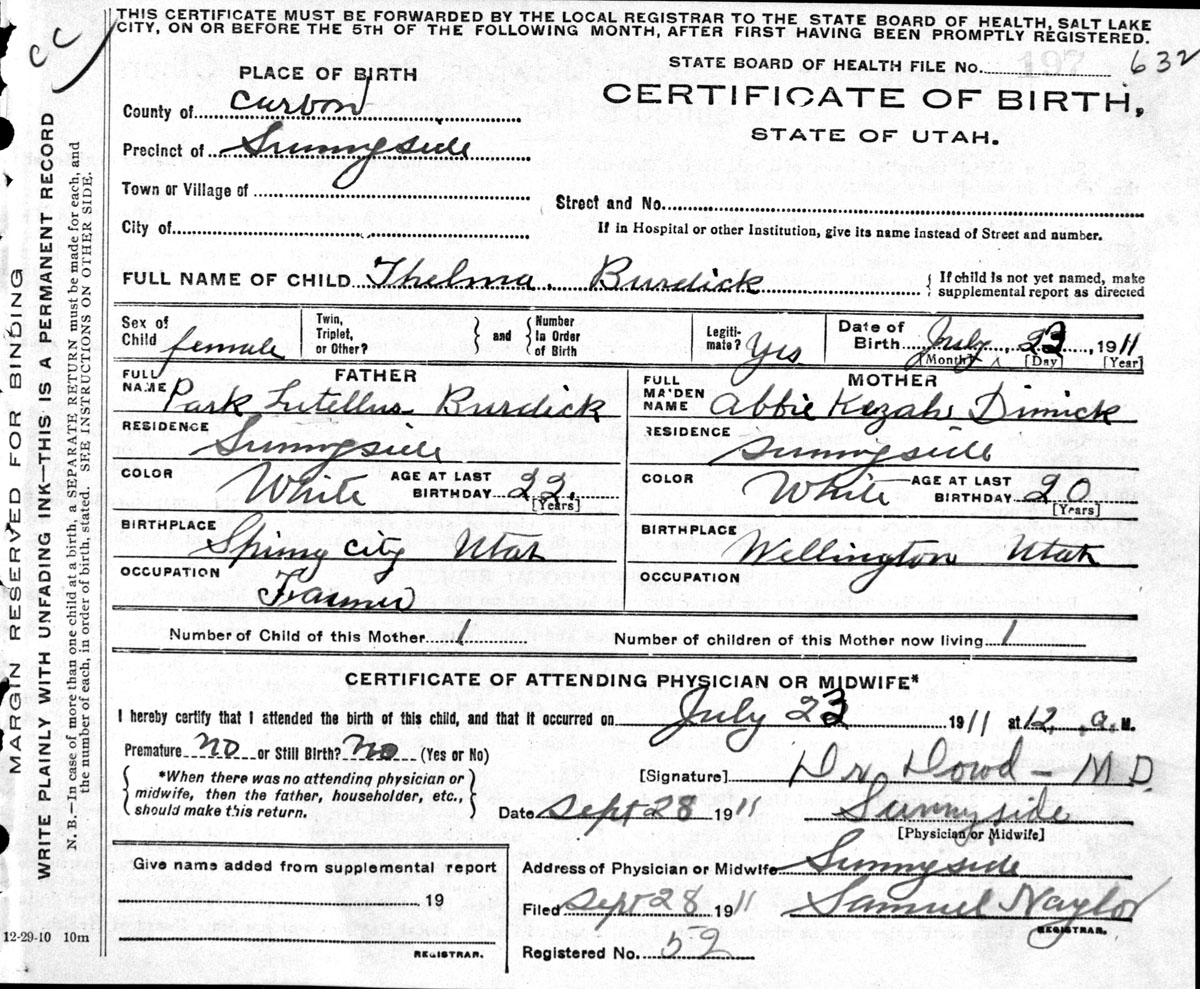 THIS CERTIFICATE MUST BE FORWARDED BY THE LOCAL REGISTRAR TO THE STATE BOARD OF HEALTH, SALT LAKE
CITY, ON OR BEFORE THE 5TH OF THE FOLLOWING MONTH, AFTER FIRST HAVING BEEN PROMPTLY REGISTERED.
cc
STATE BOARD OF HEALTH FILE No. 197 632
PLACE OF BIRTH
CERTIFICATE OF BIRTH,
STATE OF UTAH.
County of Carbon
Precinct of Sunnyside
Town or Village of
Street and No.
City of
If in Hospital or other Institution, give its name instead of Street and number.
FULL NAME OF CHILD Thelma. Burdick
{ If child is not yet named, make
supplemental report as directed
Sex of Child female
Twin, Triplet, or Other? } and { Number In Order of Birth
Legiti-mate? Yes
Date of Birth July 23, 1911
[Month] [Day] [Year]
FATHER
FULL NAME Park Lutellus Burdick
RESIDENCE Sunnyside
COLOR White AGE AT LAST BIRTHDAY 22. [Years]
BIRTHPLACE Spring city Utah
OCCUPATION
MOTHER
FULL MAIDEN NAME Abbie Kezah Dimick
RESIDENCE Sunnyside
COLOR White AGE AT LAST BIRTHDAY 20 [Years]
BIRTHPLACE Wellington Utah
OCCUPATION
Number of Child of this Mother 1 Number of children of this Mother now living 1
CERTIFICATE OF ATTENDING PHYSICIAN OR MIDWIFE*
I hereby certify that I attended the birth of this child, and that it occurred on July 23 1911 at 12, a. M.
Premature no or Still Birth? no (Yes or No)
{ *When there was no attending physician or
midwife, then the father, householder, etc.,
should make this return. }
[Signature] Dr. Dowd - M D.
Date Sept 28 1911 Sunnyside
[Physician or Midwife]
Give name added from supplemental report
19
REGISTRAR.
Address of Physician or Midwife Sunnyside
Filed Sept 28 1911 Samuel Naylor
REGISTRAR.
Registered No. 52
12-29-10 10m
MARGIN RESERVED FOR BINDING
WRITE PLAINLY WITH UNFADING INK—THIS IS A PERMANENT RECORD
N. B.—In case of more than one child at a birth, a SEPARATE RETURN must be made for each, and
the number of each, in order of birth, stated. SEE INSTRUCTIONS ON OTHER SIDE.